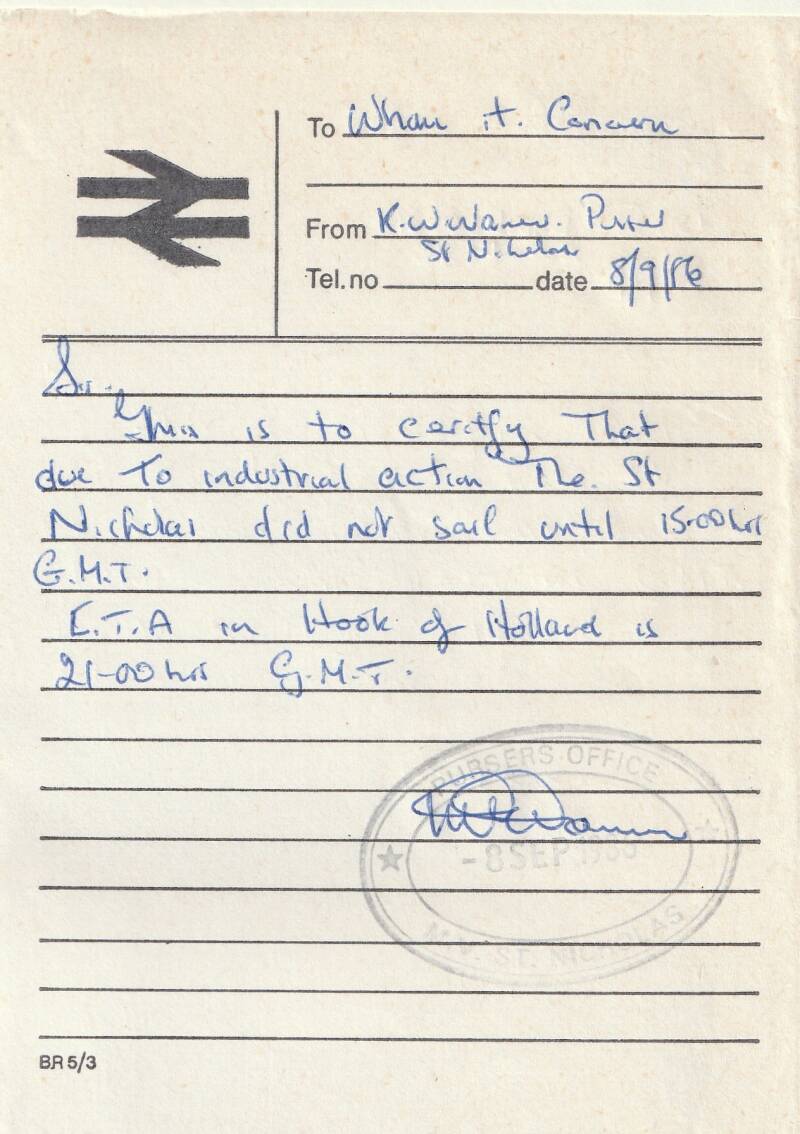 To Whom it. Concern
From K. W. Warner. Purser
St Nicholas
Tel.no date 8/9/86
Sir.
This is to certify That
due To industrial action The. St
Nicholas did not sail until 15-00 hrs
G.M.T.
E.T.A in Hook of Holland is
21-00 hrs G.M.T.
PURSERS OFFICE
-8 SEP 1986
M.V. ST. NICHOLAS
BR 5/3